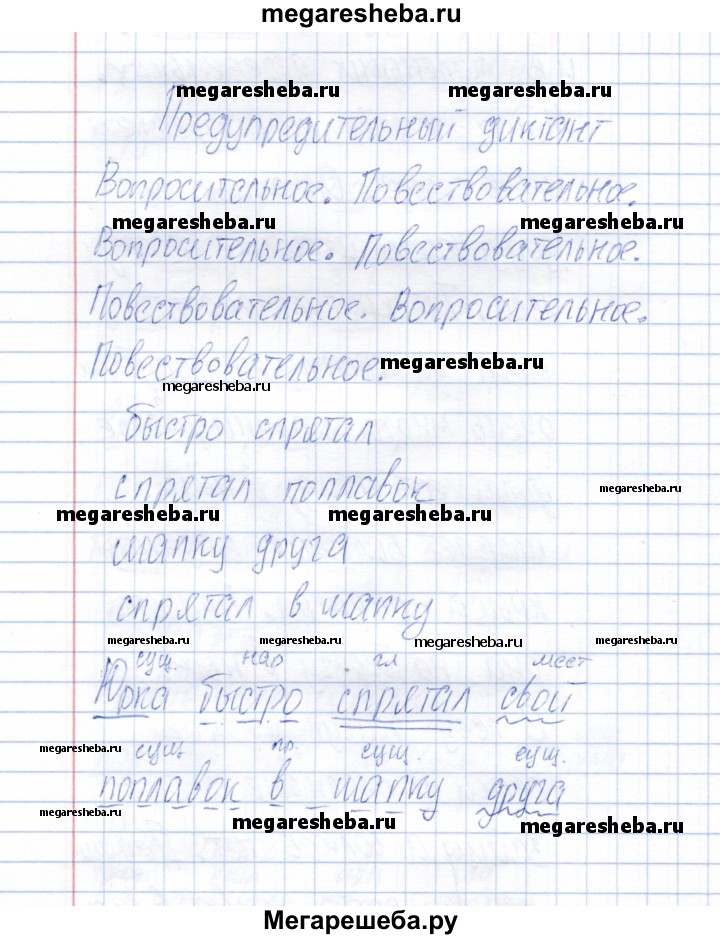 megaresheba.ru
megaresheba.ru megaresheba.ru
Предупредительный диктант
Вопросительное. Повествовательное.
megaresheba.ru megaresheba.ru
Вопросительное. Повествовательное.
Повествовательное. Вопросительное.
Повествовательное. megaresheba.ru
megaresheba.ru
быстро спрятал
спрятал поплавок megaresheba.ru
megaresheba.ru megaresheba.ru
шапку друга
спрятал в шапку
megaresheba.ru megaresheba.ru megaresheba.ru megaresheba.ru
сущ. нар гл мест
Юрка быстро спрятал свой
megaresheba.ru сущ пр. сущ. сущ.
поплавок в шапку друга
megaresheba.ru megaresheba.ru megaresheba.ru
Мегарешеба.ру